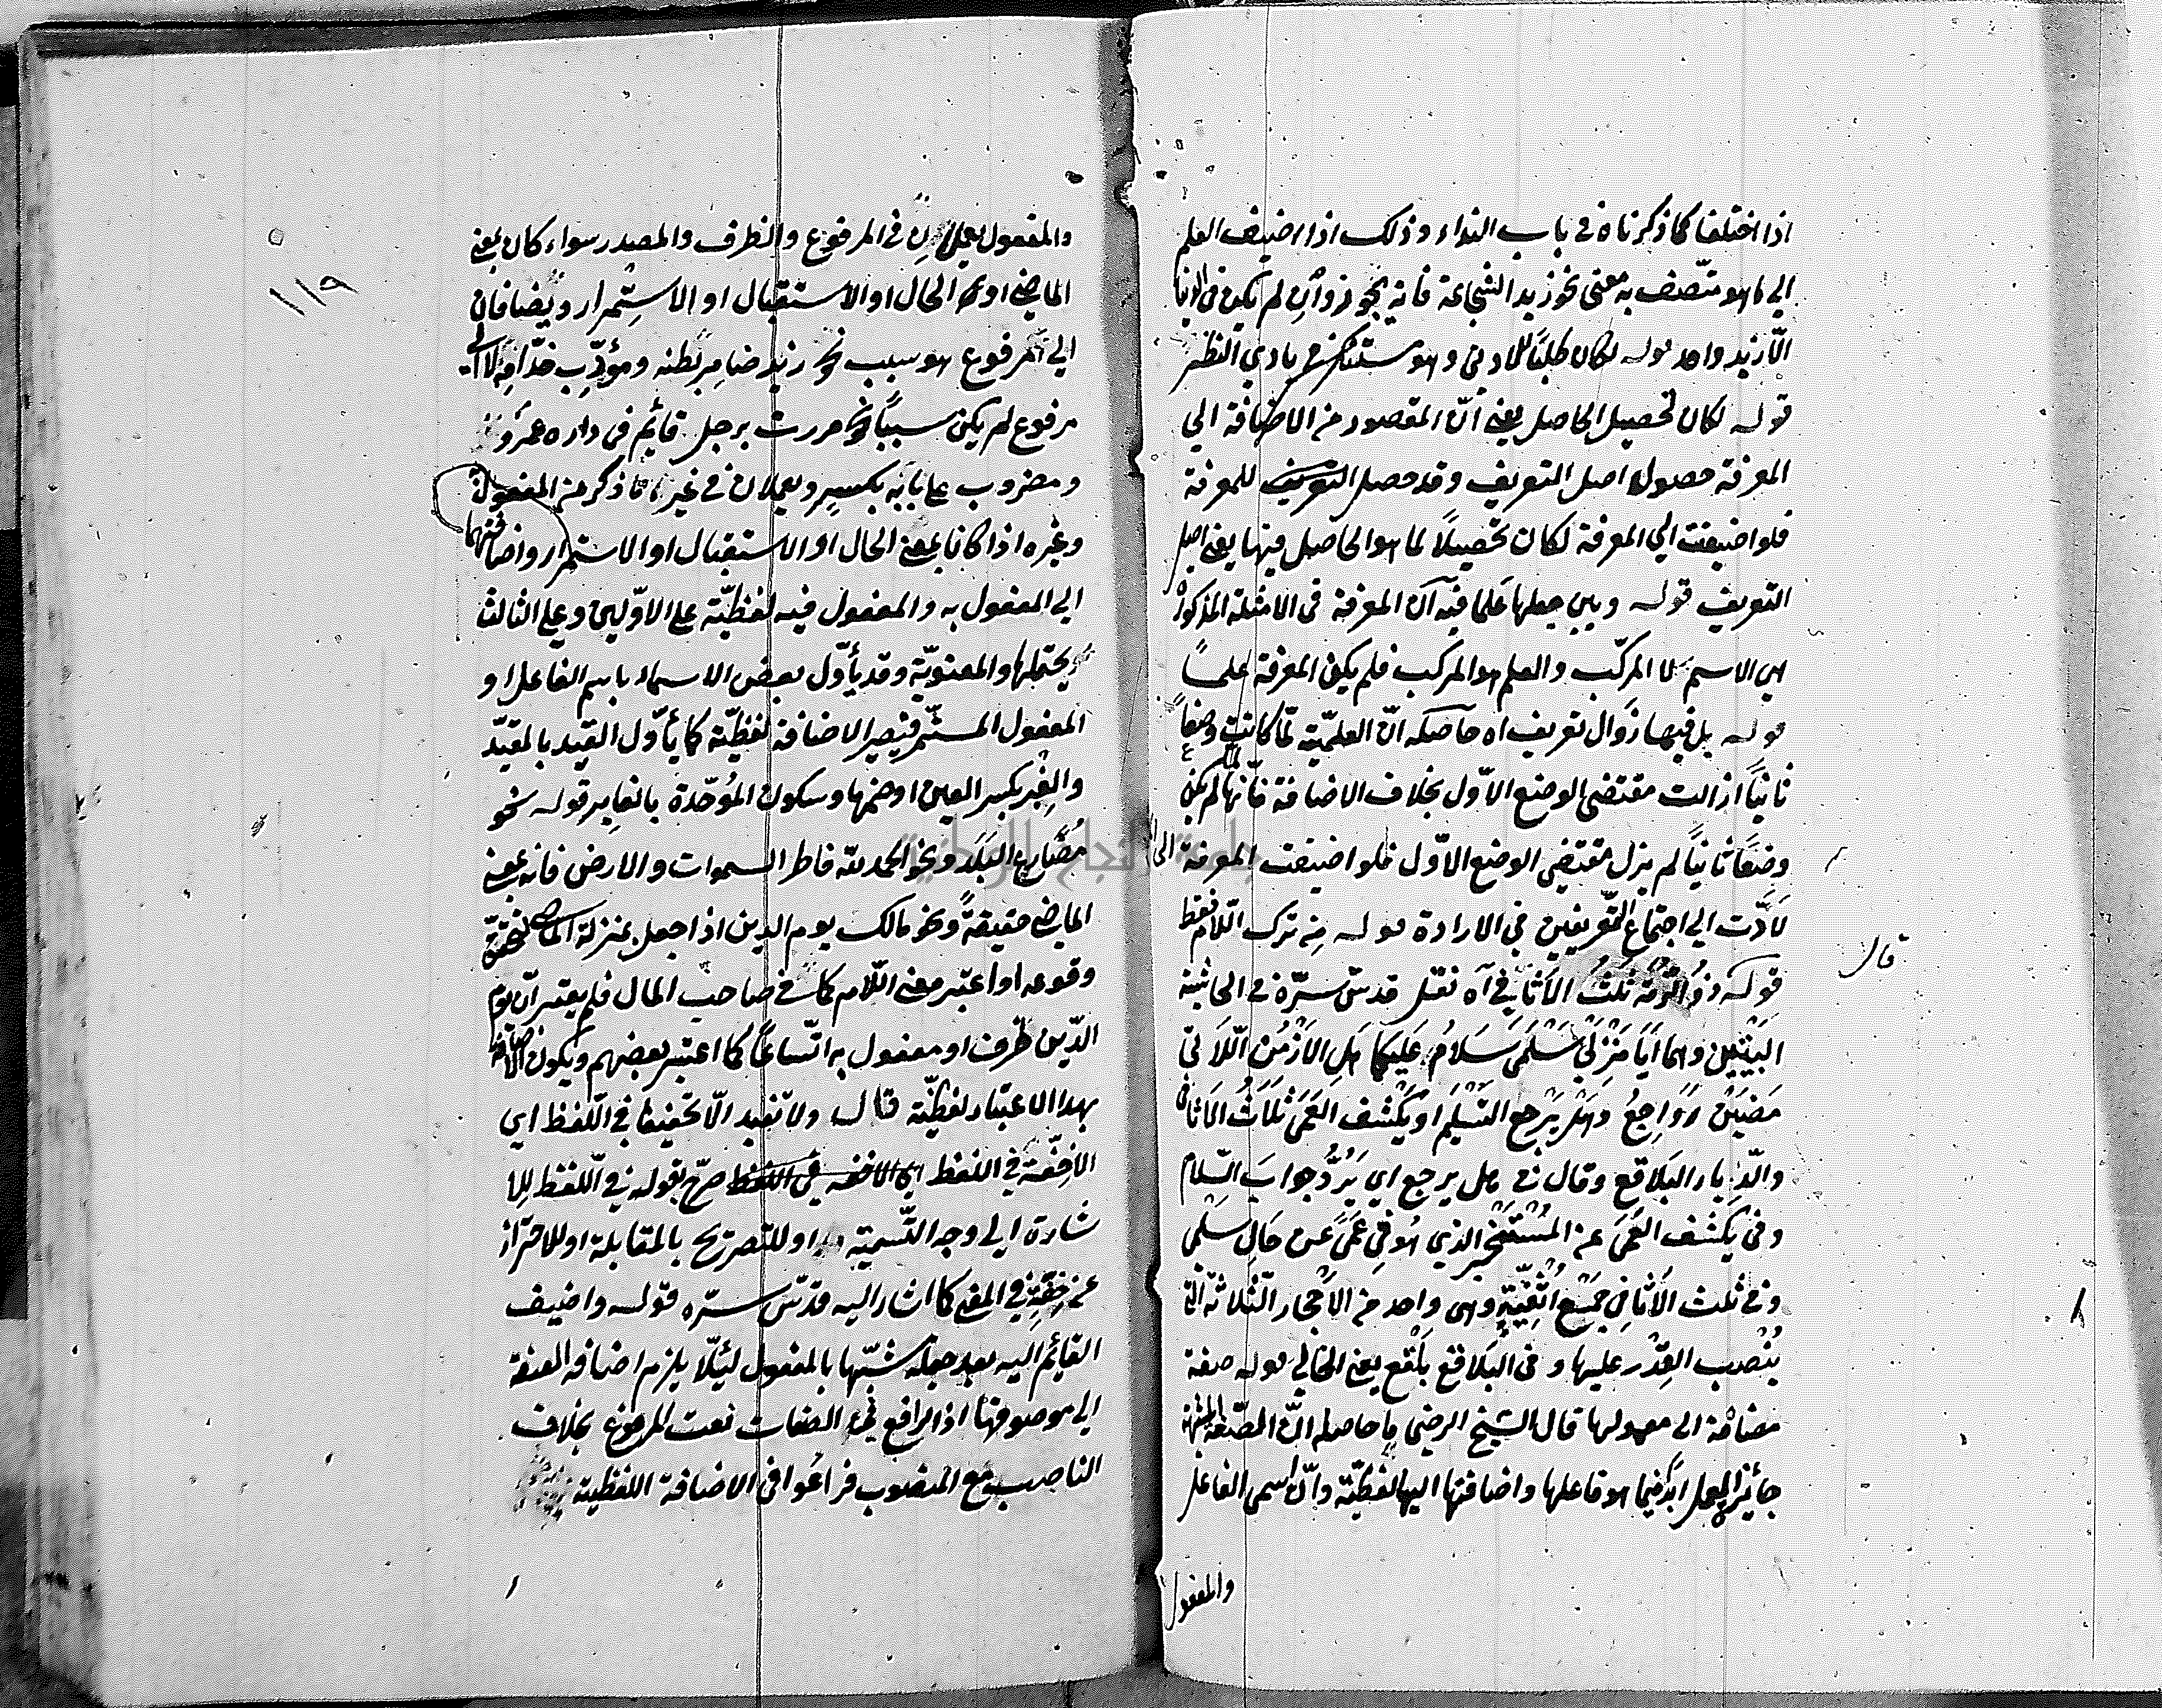 اذا اختلفا كما ذكرناه في باب النداء وذلك اذا اضيف العلم
الي ما هو متّصف به معنى نحو زيد الشجاعة فانه يجوز وان لم يكن في الدنيا
الّا زيد واحد قوله لكان طلبًا للادنى وهو مستنكر في بادي النظر
قوله لكان تحصيل الحاصل يعني انّ المقصود من الاضافة الي
المعرفة حصول اصل التعريف وقد حصل التعريف للمعرفة
فلو اضيفت الي المعرفة لكان تحصيلًا لما هو الحاصل فيها يعني اصل
التعريف قوله وبين جعلها عَلما فيه آن المعرفة في الامثلة المذكورة
هي الاسم لا المركّب والعلم هو المركب فلم يكن المعرفة علمًا
قوله بل فيها زَوال تعريف اه حاصله انّ العلميّة لمّا كانت وضعًا
ثانيًا ازالت مقتضى الوضع الاوّل بخلاف الاضافة فانّها لمّا لم يكن
وضعًا ثانيًا لم يزل مقتضى الوضع الاوّل فلو اضيفت المعرفة الى
لَادّت الي اجتماع التّعريفين في الارادة قوله مِن ترك اللّام فقط
قال
قوله ذو الرّمّة ثلث الاثافي آه نقل قدس سرّه في الحاشية
البيتين وهما أيَا مَنْزِلَيْ سَلْمَى سَلَامٌ عَلَيكما هَلِ الأَزْمُنُ اللّاتي
مَضَيْنَ رَوَاجِعُ وهَلْ يَرْجِع التسْليمَ او يَكْشف العَمَى ثَلَاثُ الاَثافي
والدّيار البَلاقع وقال في هل يرجع اي يَرُدُّ جوابَ السّلام
وفي يَكْشف العَمَى عن المُسْتَخْبر الذي هُو في عَمًى عن حَالِ سَلْمى
وفي ثلث الاَثافي جَمْع اُثْفِيّةٍ وهى واحد من الاَحْجار الثلاثة التي
يُنْصب القِدْر عليها وفي البَلاقع بَلْقَع يعني الخالي قوله صفة
مضافة الى معمولها قال الشيخ الرضي ما حاصله انّ الصّفة المشبهة
جائز العمل ابدا فيما هو فاعلها واضافتها اليها لفظيّة وانّ اسمى الفاعل
والمفعول
١١٩
والمفعول يعملان في المرفوع والظرف والمصدر سواء كان بمعني
الماضي او الحال او الاستقبال او الاستِمْرار ويُضافان
الي مرفوع هو سبب نحو زيد ضامِر بَطنه ومؤدّب خدّامِه لا الى
مرفوع لم يكن سببًا نحو مررت برجل قائم في داره عمرو
ومضروب على بابه بكسرٍ ويعملان في غير ما ذكر من المفعول
وغيره اذا كانا بمعني الحال او الاستقبال او الاستمرار واضافتهما
الي المفعول به والمفعول فيه لفظيّة علي الاوّلين وعلي الثالث
يحتملها والمعنويّة وقد يأوّل بعض الاسماء باسم الفاعل او
المفعول المستمر فيصير الاضافة لفظيّة كما يأوّل القيد بالمقيّد
والغبر بكسر العين او ضمها وسكون المُوحّدة بالغابِر قوله نحو
مُصارع البَلَد ونحو الحمد لله فاطر السموات والارض فانه بمعني
الماضي حقيقةً ونحو مالك يوم الدين اذا جعل بمنزلة الماضي لتحقّق
وقوعه او اعتبر معني اللّام كما في صاحب المال فلم يعتبر انّ يوم
الدّين ظرف او مفعول به اتّساعًا كما اعتبر بعضهم ويكون الاضافة
بهذا الاعتبار لفظيّة قال ولا تفيد الّا تخفيفا في اللّفظ اي
الاخفّة في اللفظ صرّح بقوله في اللّفظ للا
شارة الي وجه التّسمية او للتصريح بالمقابلة او للاحتراز
عن خِفّةٍ في المعنى كما اشار اليه قدّس سرّه قوله واضيف
القائم اليه بعد جعله شبّها بالمفعول لئلّا يلزم اضافة الصفة
الي موصوفها اذ الرافع في الصفات نعت المرفوع بخلاف
الناصب مع المنصوب فراعُوا في الاضافة اللفظية